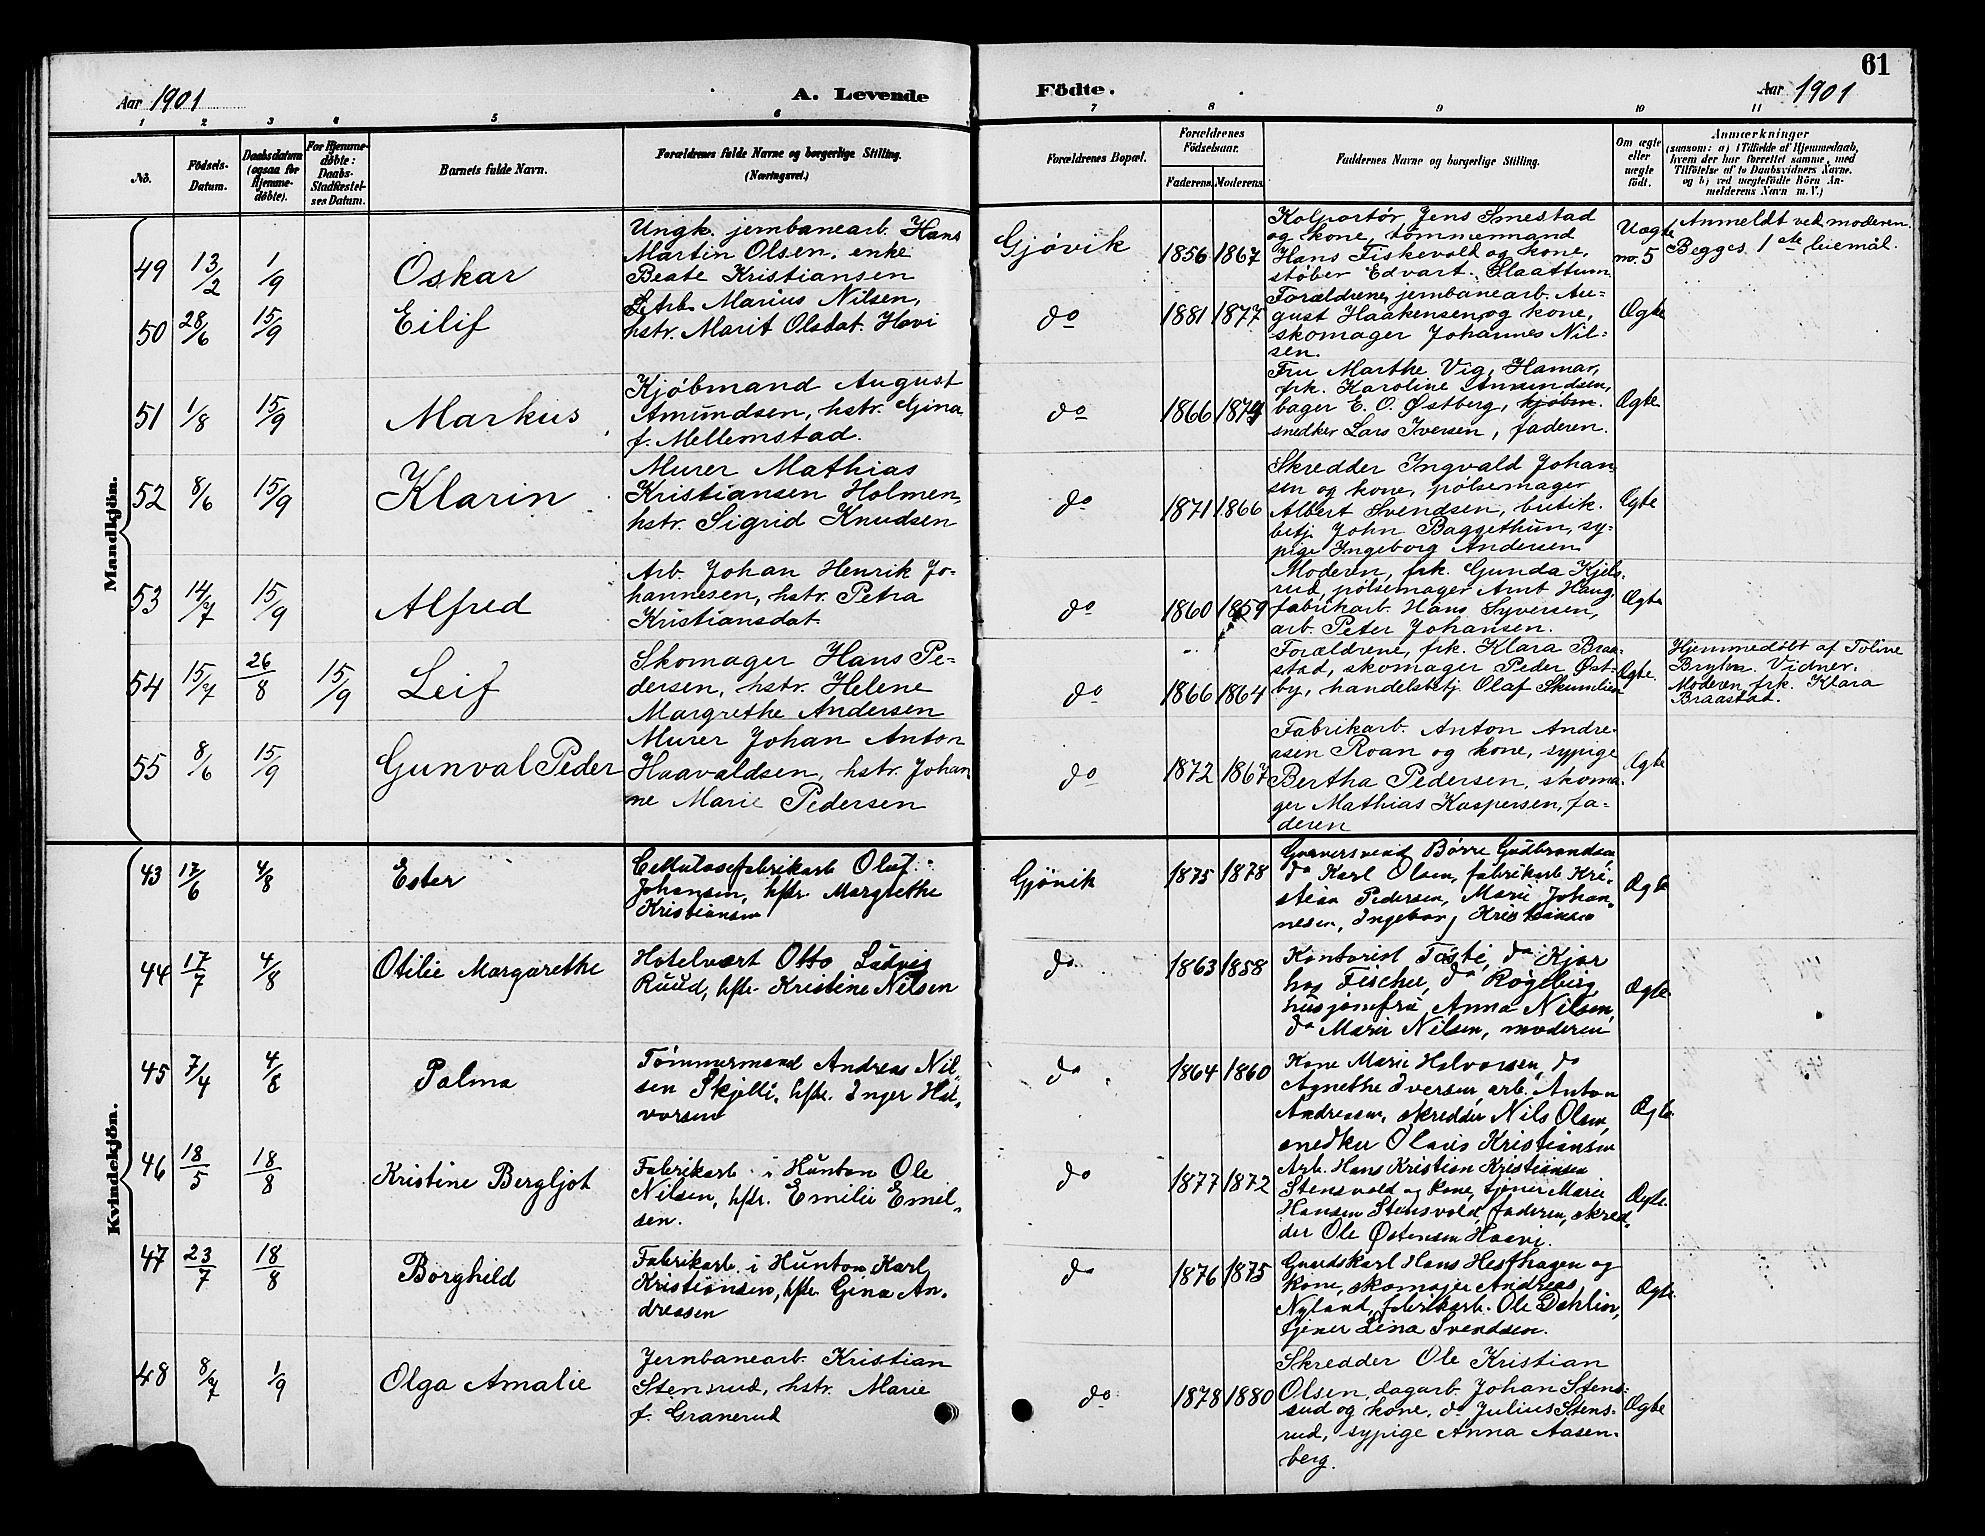 61
Aar 1901
A. Levende
Födte.
Aar 1901
1 2 3 4 5 6 7 8 9 10 11
No.
Födsels-Datum.
Daabsdatum (ogsaa for Hjemmedöbte).
For Hjemmedöbte: Daabs-Stadfæstelses Datum.
Barnets fulde Navn.
Forældrenes fulde Navne og borgerlige Stilling. (Næringsvei.)
Forældrenes Bopæl.
Forældrenes Födselsaar.
Faderens. Moderens.
Faddernes Navne og borgerlige Stilling.
Om ægte eller uægte födt.
Anmærkninger
(saasom: a) i Tilfælde af Hjemmedaab, hvem der har forrettet samme, med Tilföielse af to Daabsvidners Navne, og b) ved uægtefödte Börn Anmelderens Navn m. V.)
Mandkjön.
49 13/2 1/9 Oskar
Ungk. jernbanearb. Hans
Martin Olsen, enke
Beate Kristiansen
Gjøvik 1856 1867
Kolportør Jens Smestad
og kone, tømmermand
Hans Fiskevold og kone,
støber Edvart Slaattum
Uægte
no. 5
Anmeldt ved moderen.
Begges 1ste leiemål.
50 28/6 15/9 Eilif
Arb. Marius Nilsen,
hstr. Marit Olsdat. Hovi
do 1881 1877
Forældrene, jernbanearb. Au-
gust Haakensen og kone,
skomager Johannes Nil-
sen.
Ægte
51 1/8 15/9 Markus
Kjøbmand August
Amundsen, hstr. Gina
f. Mellemstad.
do 1866 1874
Fru Marthe Vig, Hamar,
frk. Karoline Amundsen,
bager E. O. Østberg, kjøbm.
snedker Lars Iversen, faderen.
Ægte
52 8/6 15/9 Klarin
Murer Mathias
Kristiansen Holmen,
hstr. Sigrid Knudsen
do 1871 1866
Skredder Ingvald Johan
sen og kone, pølsemager
Albert Svendsen, butik.
betj. John Baggethun, sy-
pige Ingeborg Andersen
Ægte
53 14/7 15/9 Alfred
Arb. Johan Henrik Jo-
hannesen, hstr. Petra
Kristiansdat.
do 1860 1859
Moderen, frk. Gunda Kjels-
rud, pølsemager Arnt Haug,
fabrikarb. Hans Syversen,
arb. Peter Johansen.
Ægte
54 15/7 26/8 15/9 Leif
Skomager Hans Pe-
dersen, hstr. Helene
Margrethe Andersen
do 1866 1864
Forældrene, frk. Klara Braa-
stad, skomager Peder Øst-
by, handelsbetj. Olaf Skumlien
Ægte.
Hjemmedøbt af Toline
Vidner.
Moderen, frk. Klara
Braastad.
55 8/6 15/9 Gunval Peder
Murer Johan Anton
Haavaldsen, hstr. Johan
ne Marie Pedersen
do 1872 1867
Fabrikarb. Anton Andre-
asen Roan og kone, sypige
Bertha Pedersen, skoma-
ger Mathias Kaspersen, fa-
deren
Ægte
Kvindekjön.
43 17/6 4/8 Ester
Cellulosefabrikarb Olaf
Johansen, hstr. Margrethe
Kristiansen
Gjøvik 1875 1878
Garversvend Børre Gudbrandsen,
do Karl Olsen, fabrikarb Kri-
stian Pedersen, Marie Johan-
nesen, Ingeborg Kristiansen
Ægte
44 17/7 4/8 Otilie Margarethe
Hotelvært Otto Ludvig
Ruud, hstr. Kristine Nilsen
do 1863 1858
Kontorist Toste, do Kjær
hos Fischer, do Røgeberg
husjomfru Anna Nilsen,
do Marie Nilsen, moderen
Ægte.
45 7/4 4/8 Palma
Tømmermand Andreas Nil-
sen Skjelli, hstr. Inger Hal-
vorsen
do 1864 1860
Kone Marie Halvorsen, do
Agnethe Iversen, arb. Anton
Andreasen, skredder Nils Olsen,
snedker Olaus Kristiansen
Ægte.
46 18/5 18/8 Kristine Bergljot
Fabrikarb. i Hunton Ole
Nilsen, hstr. Emilie Emil-
sen.
do 1877 1872
Arb. Hans Kristian Kristiansen
Stensvold og kone, tjener Marie
Hansen Stensvold, faderen, skred-
der Ole Østensen Haavi.
Ægte.
47 23/7 18/8 Borghild
Fabrikarb. i Hunton Karl
Kristiansen, hstr. Gina An-
dreasen
do 1876 1875
Gaardskarl Hans Hesthagen og
kone, skomager Andreas
Nyland, fabrikarb. Ole Dahlin,
tjener Lina Svendsen.
Ægte.
48 8/7 1/9 Olga Amalie
Jernbanearb. Kristian
Stensrud, hstr. Marie
f. Granerud
do 1878 1880
Skredder Ole Kristian
Olsen, dagarb. Johan Stens-
rud og kone, do Julius Stens-
rud, sypige Anna Aasen-
berg.
Ægte